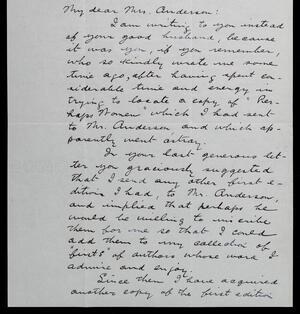 My dear Mrs. Anderson:
I am writing to you instead
of your good husband, because
it was you, if you remember,
who so kindly wrote me some
time ago, after having spent con-
siderable time and energy in
trying to locate a copy of "Per-
haps Women" which I had sent
to Mr. Anderson, and which ap-
parently went astray.
In your last generous let-
ter you graciously suggested
that I send any other first e-
dition I had, to Mr. Anderson,
and implied that perhaps he
would be willing to inscribe
them for me so that I could
add them to my collection of
"firsts" of authors whose work I
admire and enjoy.
Since then I have acquired
another copy of the first edition